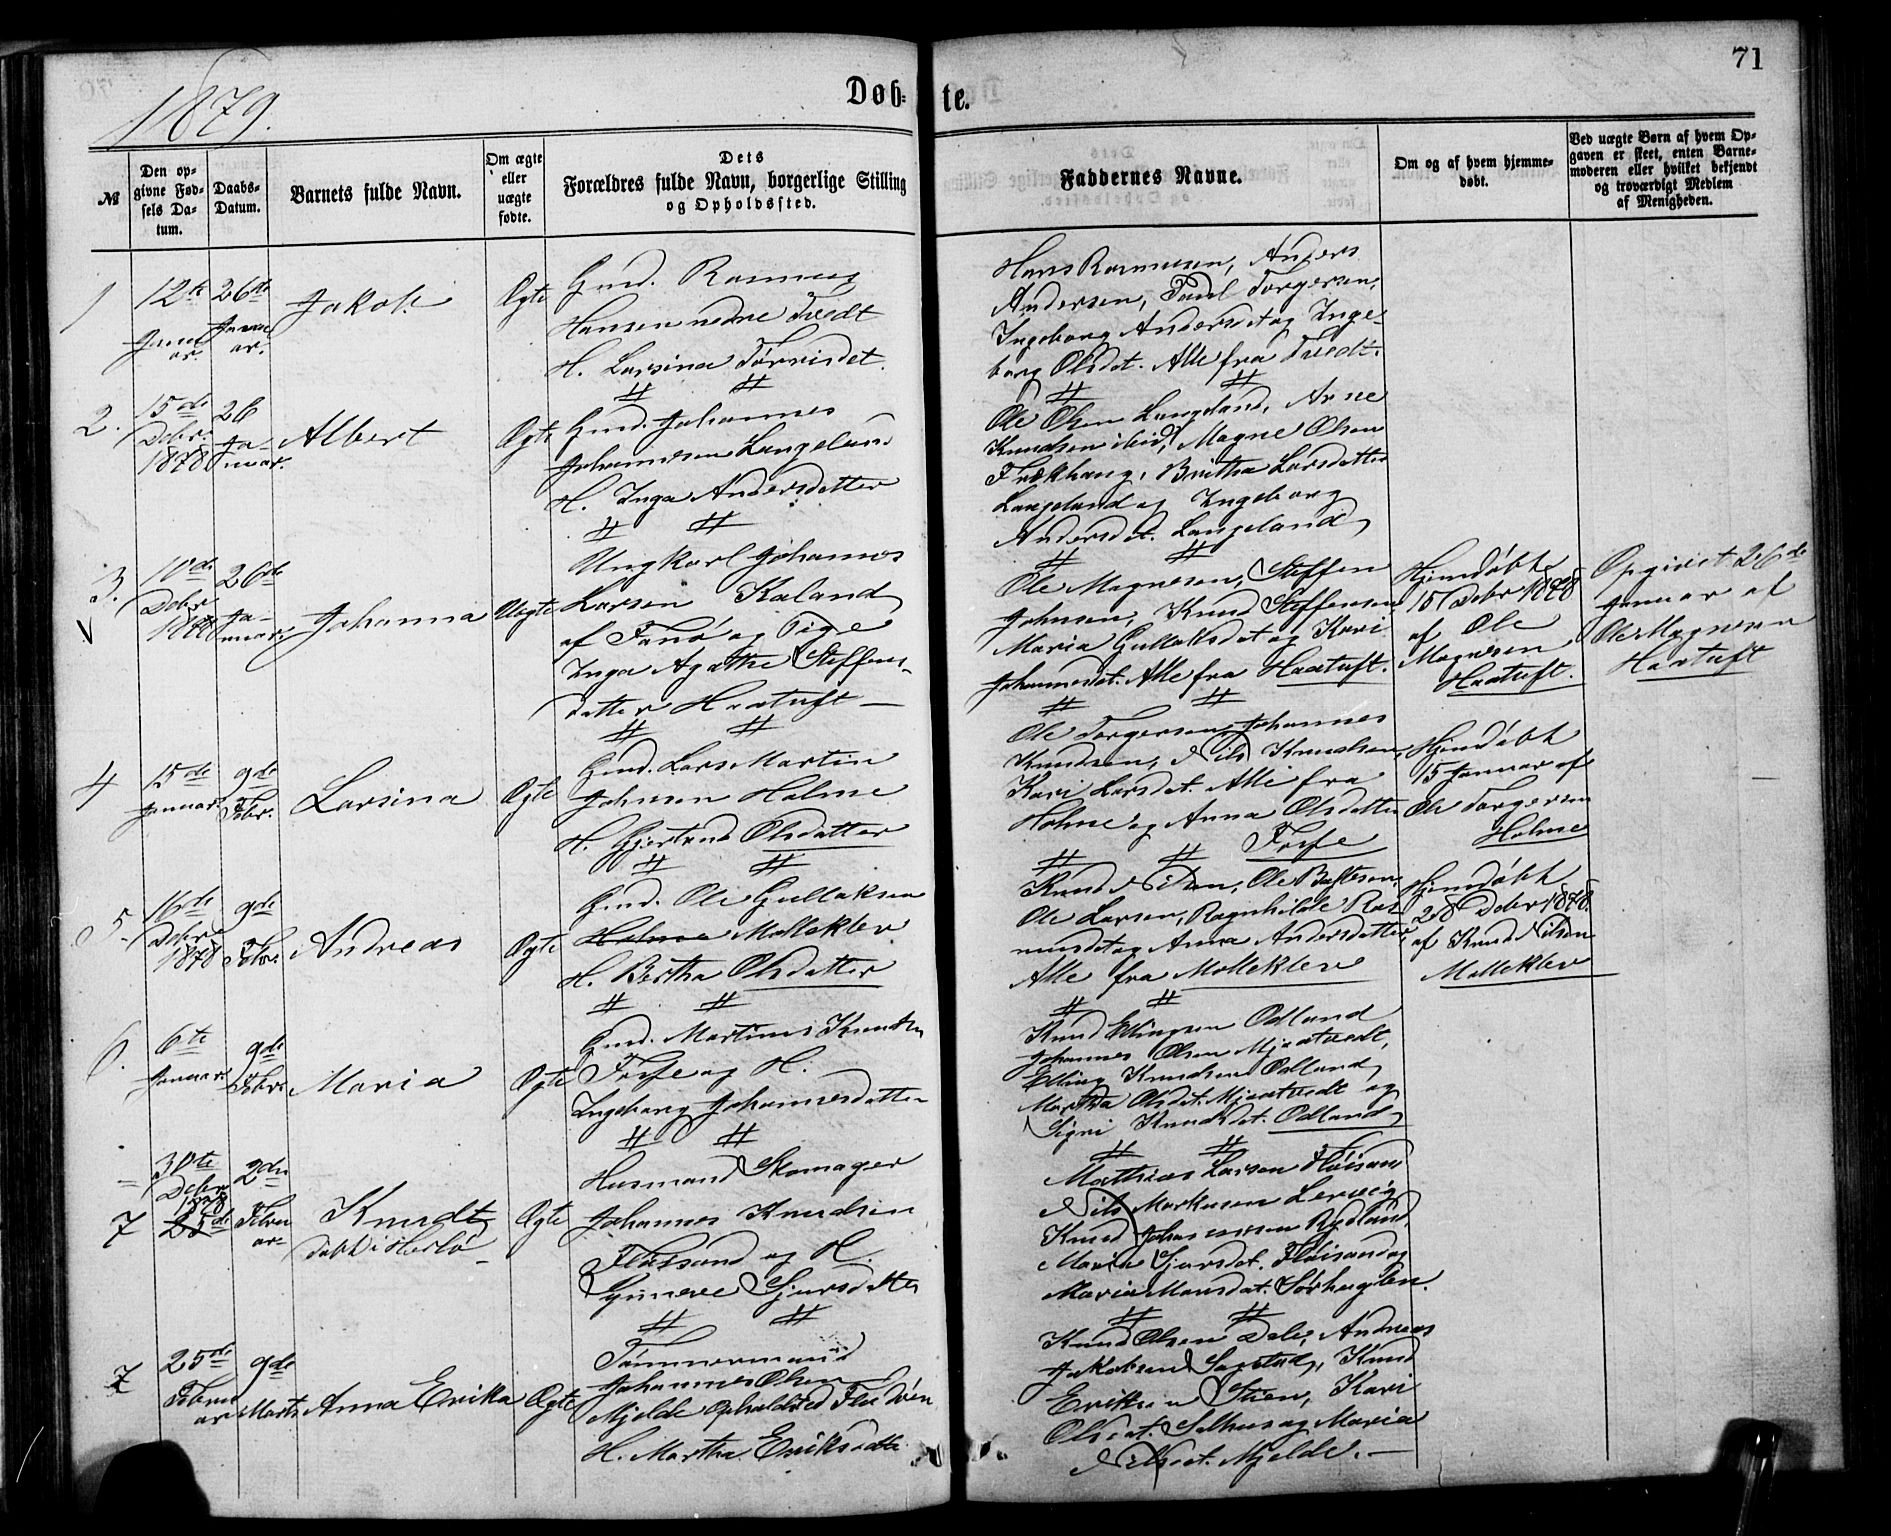 71
1879.
Døb-
te.
№
Den op-
givne Fød-
sels Da-
tum.
Daabs-
Datum.
Barnets fulde Navn.
Om ægte
eller
uægte
fødte.
Dets
Forældres fulde Navn, borgerlige Stilling
og Opholdssted.
Faddernes Navne.
Om og af hvem hjemme-
døbt.
Ved uægte Børn af hvem Op-
gaven er skeet, enten Barne-
moderen eller hvilket bekjendt
og troværdigt Medlem
af Menigheden.
1
12te
Janu
ar.
26de
Janu
ar.
Jakob
Ægte
Gmd. Rasmus
Hansen nedre Tvedt
H. Larsina
Hans Rasmusen, Anders
Andersen, Paul Torgersen,
Ingeborg Andersdt og Inge-
borg Olsdat. Alle fra Tvedt.
2.
15de
Debr.
1878
26
Ja-
nuar.
Albert
Ægte
Gmd. Johannes
Johannesen Langeland
H. Inga Andersdatter
Ole Olsen Langeland, Arne
Knudsen ibid, Magne Olsen
Britha Larsdatter
Langeland og Ingeborg
Andersdt. Langeland
3.
10de
Debr
26de
Ja-
nuar.
Johanna
Uægte
Ungkarl Johannes
Larsen Kaland
af Fanø og Pige
Inga Agathe Steffens-
datter Haatuft
Ole Magnesen, Steffen
Johnsen, Knud Steffensen
Maria Gullaksdt og Kari
Johannesdt. Alle fra Haatuft.
Hjemdøbt
15 Debr 1878
af Ole
Magnesen
Haatuft.
Opgivet 26de
Januar af
Ole Magnesen
Haatuft
4
15de
Januar.
9de
Febr.
Larsina
Ægte
Gmd. Lars Martin
Johnsen Holme
H. Gjertrud Olsdatter
Ole Torgersen, Johannes
Knudsen, Nils Knudsen,
Kari Larsdt. Alle fra
Holme og Anna Olsdatter
Fosse
Hjemdøbt
15 Januar af
Ole Torgersen
Holme
5.
16de
Debr
1878
9de
Febr.
Andreas
Ægte
Gmd. Ole Gullaksen
Holme Mølleklev
H. Bertha Olsdatter
Knud Nilsen, Ole
Ole Larsen, Ragnhilde Ras
musdt og Anna Andersdatter
Alle fra Møllekleve
Hjemdøbt
28 Debr 1878.
af Knud Nilsen
Møllekleve
6.
6te
Januar.
9de
Febr.
Maria
Ægte
Gmd. Martinus Knudsen
Fosse og H.
Ingeborg Johannesdatter
Knud Ellingsen Odland
Johannes Olsen Mjaatvedt,
Elling Knudsen Odland,
Martha Olsdt. Mjaatvedt og
Signi Knudsdt. Odland
7
30te
Debr
1878
25de
2den
Februar
Knudt
døbt i Herlø
Ægte
Husmand Skomager
Johannes Knudsen
Fløisand og H.
Gunere Sjursdatter
Mathias Larsen Fløisand
Nils Markusen Lervig
Knud Johannesen Rydland,
Maria Sjursdt. Fløisand og
Maria Monsdat.
7
25de
Febru
ar
9de
Marts
Anna Erika
Ægte
Tømmermand
Johannes Olsen
Mjelde Opholdsted
H. Martha Eriksdatter
Knud Olsen Dale, Andreas
Jakobsen Sagstad, Knud
Eriksen Kari
Olsdat. Selhus og Maria
Nilsdt. Mjelde.